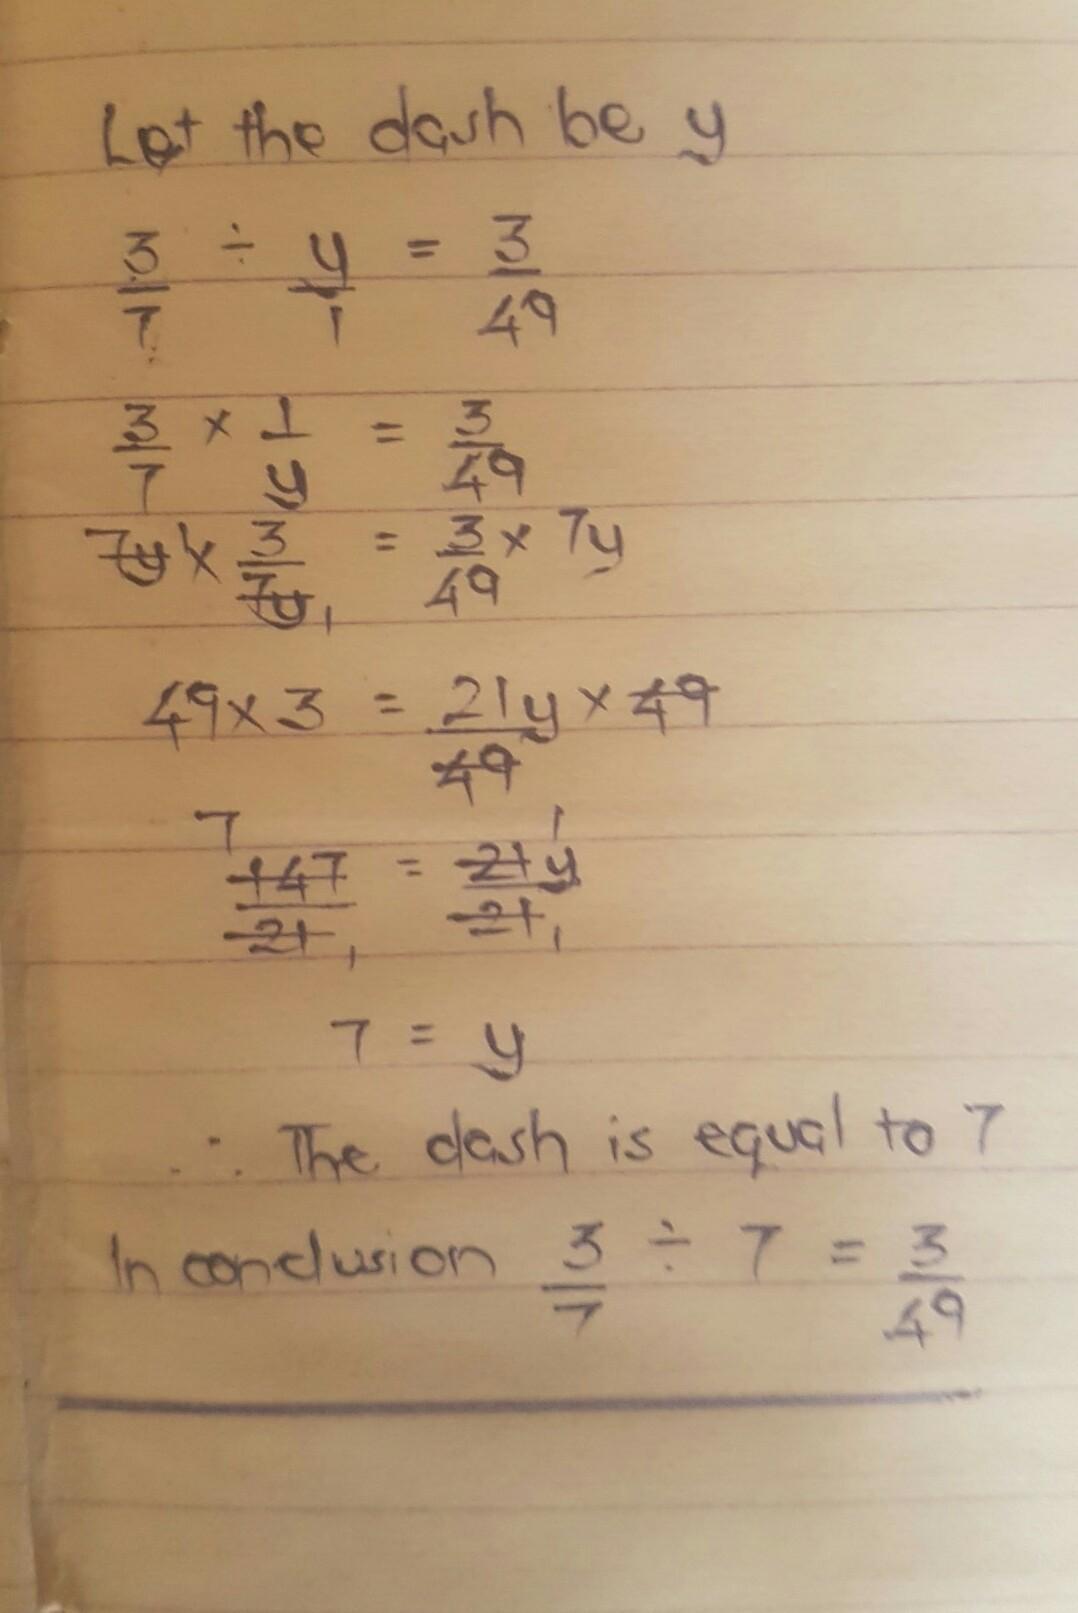 Let the dash be y
3/7 ÷ y/1 = 3/49
3/7 × 1/y = 3/49
7y 1 × 3/7y 1 = 3/49 × 7y
49 × 3 = 21y/49 × 49
7 147/21 1 = 1 21y/21 1
7 = y
∴ The dash is equal to 7
In conclusion 3/7 ÷ 7 = 3/49